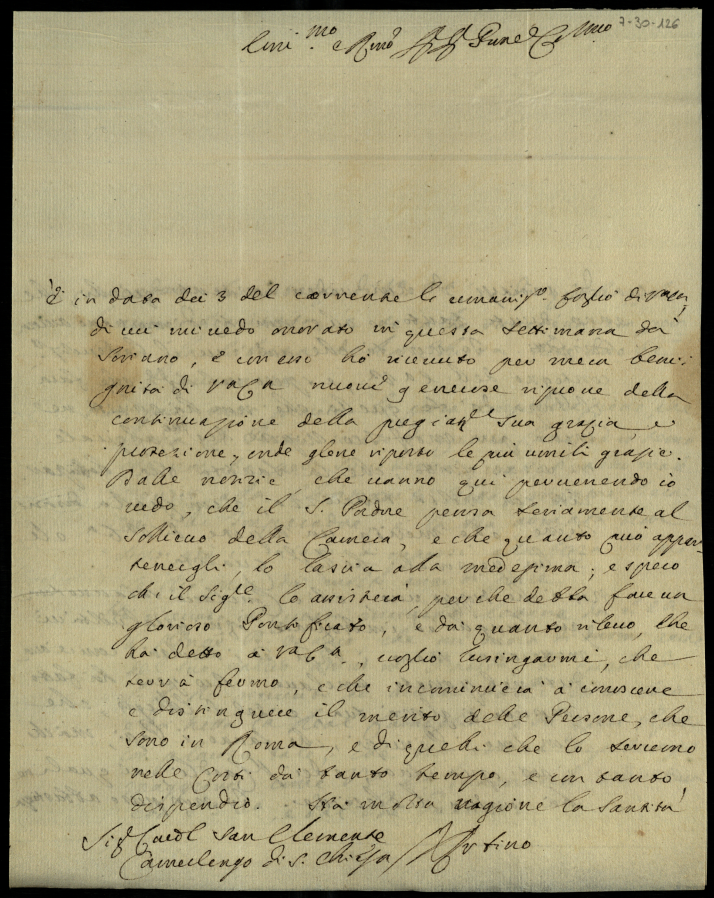 7-30-126
Emi.mo e Rmo Sig.r Sig.r Prone Colmo
È in data dei 3 del corrente l'umaniss.o foglio di Va Ema
di cui mi vedo onorato in questa settimana da
Soriano, e con esso hò ricevuto per mera beni,
gnità di Va Ema nuove generose riprove della
continuazione della pregiat.le Sua grazia e
protezione, onde glene riporto le più umili grazie.
Dalle notizie, che vanno qui pervenendo io
vedo, che il S. Padre pensa seriamente al
sollievo della Camera, e che quanto può appar,
tenergli, lo lascia alla medesima; e spero
che il Sig.re lo assisterà, perche detta fare un
glorioso Pontificato, e da quanto rilevo, che
ha detto à Va Ema, voglio lusingarmi, che
terrà fermo, e che incomincerà à conoscere
e distinguere il merito delle Persone, che
sono in Roma, e di quelli che lo servono
nelle Corti da tanto tempo, e con tanto
dispendio. Hà molta ragione la Santità
Sig.r Cardl San Clemente
Camerlengo di S. Chiesa